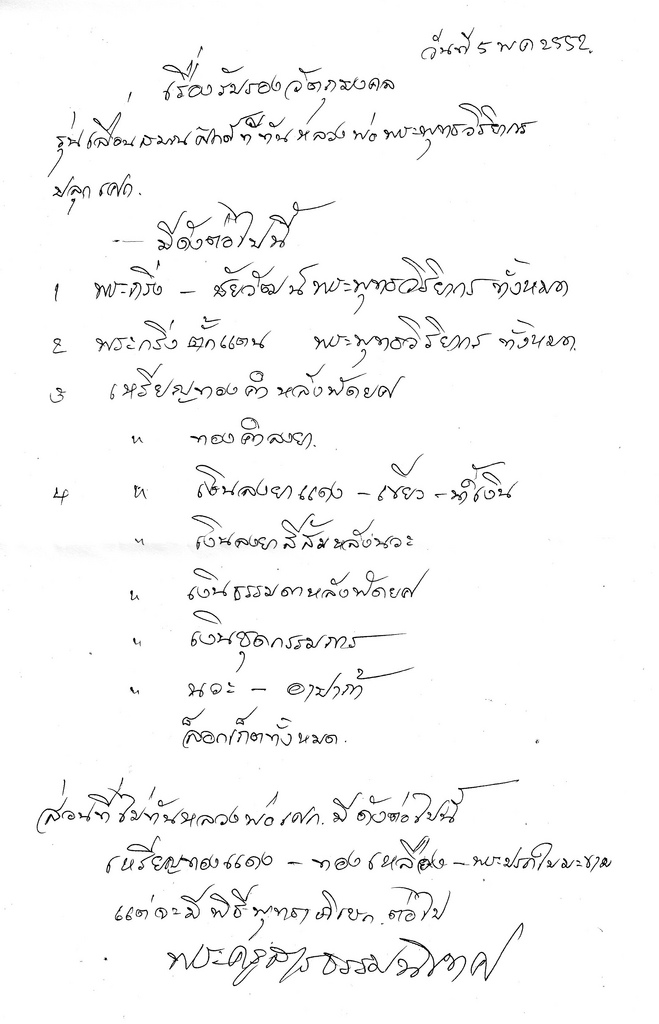 วันที่ 5 พ.ค 2552.
เรื่องรับรองวัตถุมงคล
รุ่นเลื่อนสมณศักดิ์ที่ทันหลวงพ่อพระพุทธวิริยากร
ปลุกเสก.
— มีดังต่อไปนี้
1 พระกริ่ง – ชัยวัฒน์พระพุทธวิริยากร ทั้งหมด
2 พระกริ่ง ตั๊กแตน พระพุทธวิริยากร ทั้งหมด.
3 เหรียญทองคำหลังพัดยศ
" ทองคำลงยา.
4 " เงินลงยาแดง – เขียว – น้ำเงิน
" เงินลงยาสีส้มหลังนวะ
" เงินธรรมดาหลังพัดยศ
" เงินชุดกรรมการ
" นวะ – อาปาก้า
ล็อกเก็ตทั้งหมด.
ส่วนที่ไม่ทันหลวงพ่อเสก. มีดังต่อไปนี้
เหรียญทองแดง – ทองเหลือง – พระปรกใบมะขาม
แต่จะมีพิธีพุทธาภิเษก ต่อไป
พระครูสารธรรมนิเทศ